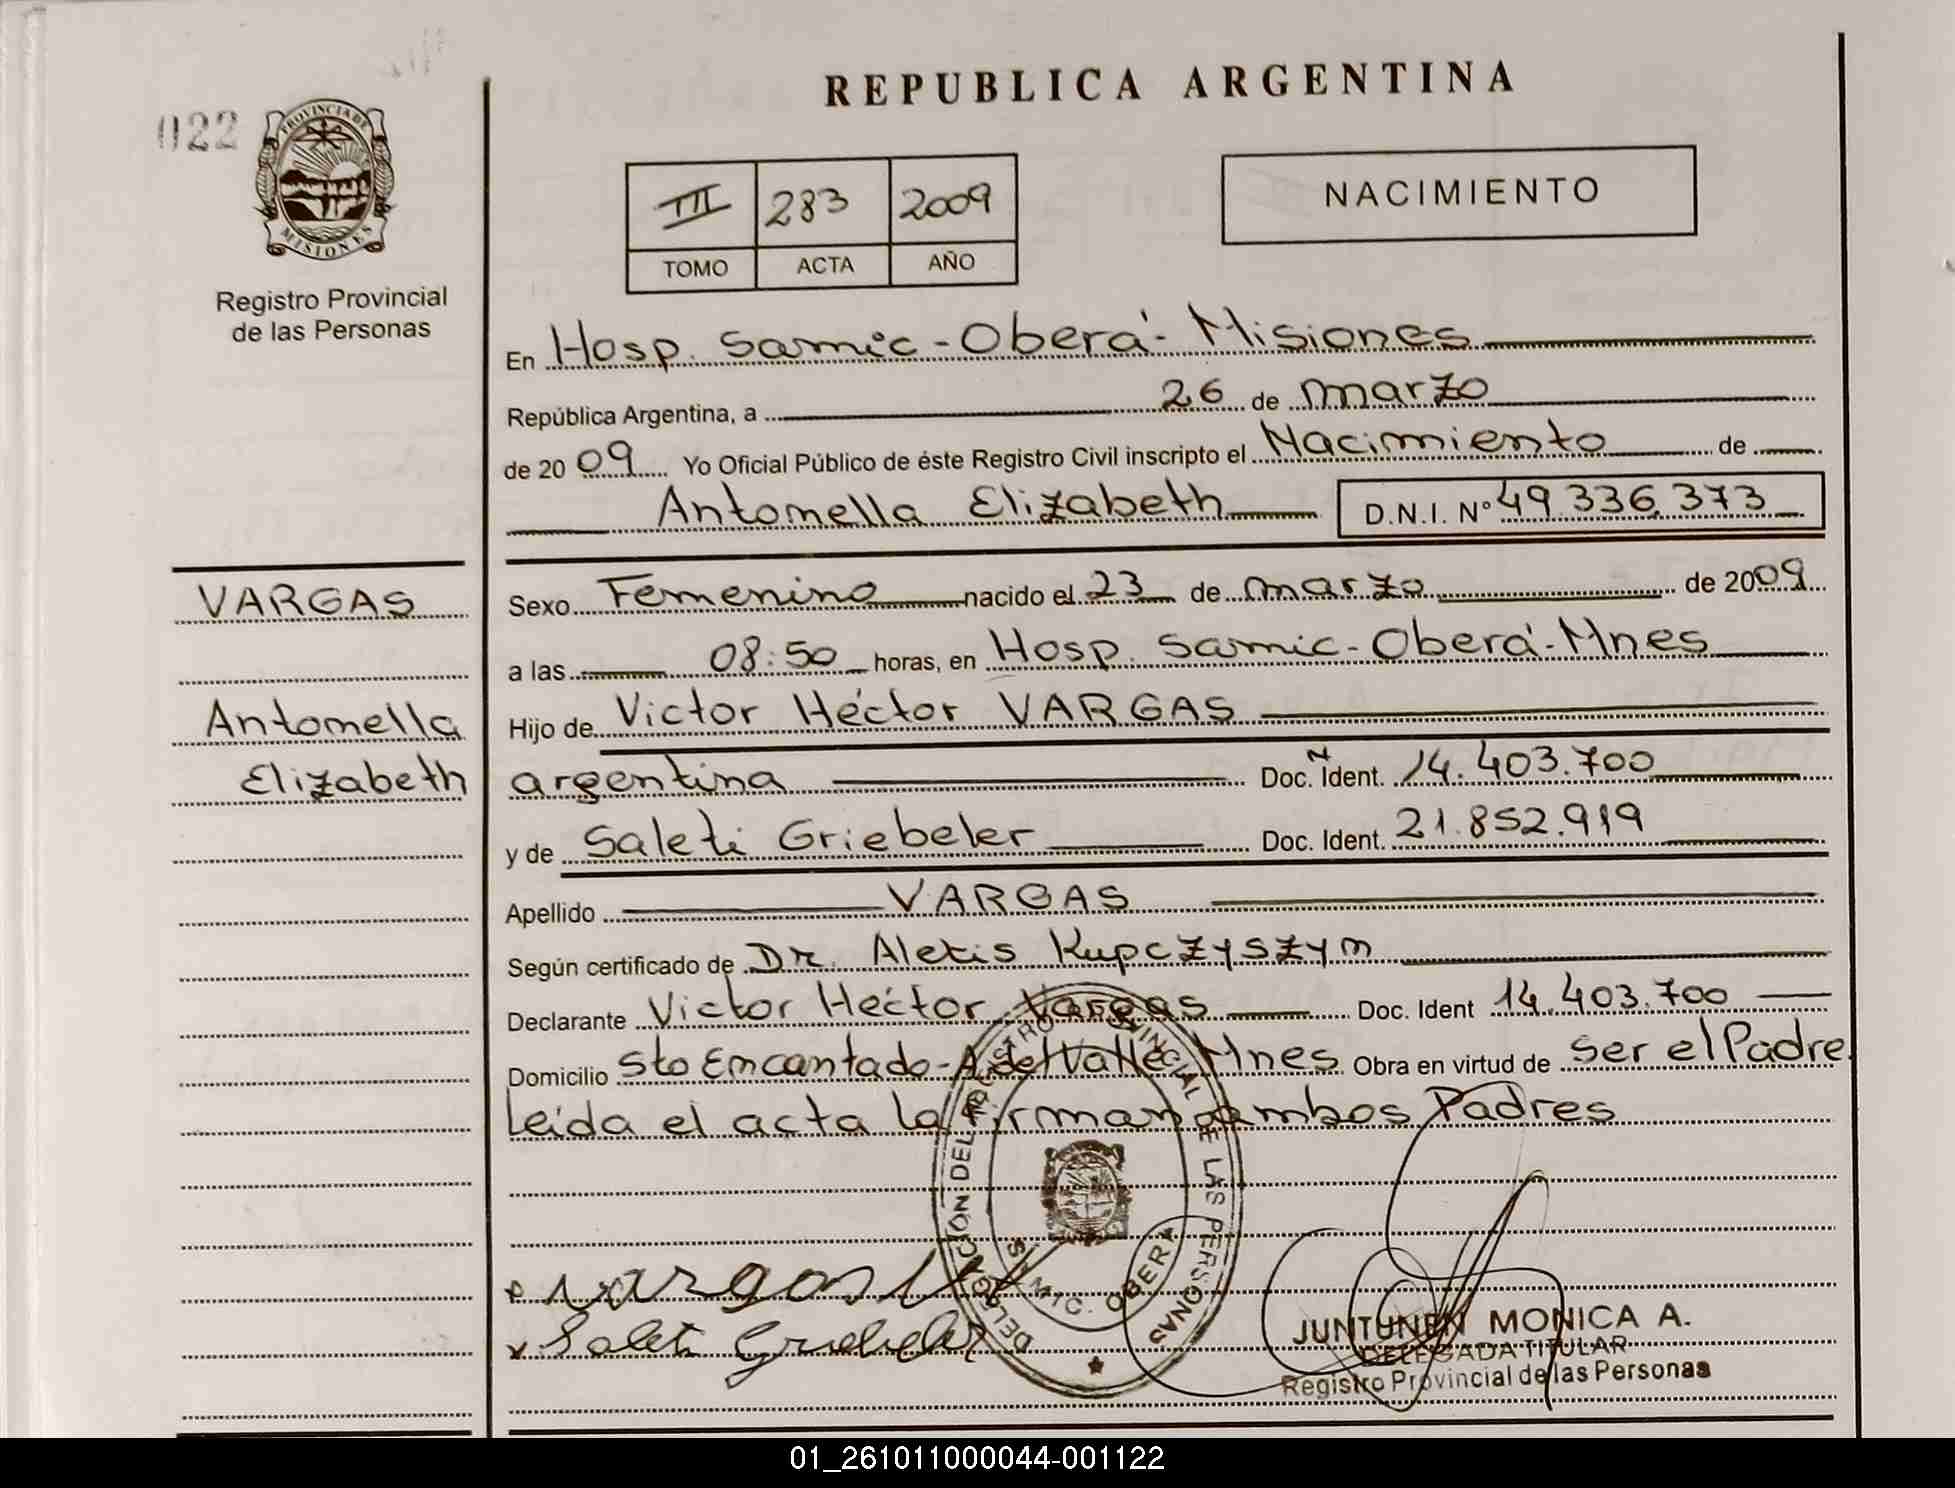 REPUBLICA ARGENTINA
022
PROVINCIA DE MISIONES
Registro Provincial
de las Personas
III 283 2009
TOMO ACTA AÑO
NACIMIENTO
En Hosp. Samic - Oberá - Misiones
República Argentina, a 26 de marzo
de 2009 Yo Oficial Público de éste Registro Civil inscripto el Nacimiento de
Antonella Elizabeth D.N.I. Nº 49.336.373
VARGAS
Antonella
Elizabeth
Sexo Femenino nacido el 23 de marzo de 2009
a las 08:50 horas, en Hosp. Samic - Oberá - Mnes
Hijo de Victor Héctor VARGAS
argentina Doc. Ident. N 14.403.700
y de Saleti Griebeler Doc. Ident. 21.852.919
Apellido VARGAS
Según certificado de Dr. Aletis Kupczyszyn
Declarante Victor Héctor Vargas Doc. Ident 14.403.700
Domicilio Sto Encantado - A del Valle Mnes Obra en virtud de ser el Padre
leída el acta la firman ambos Padres
DELEGACION DEL REGISTRO PROVINCIAL DE LAS PERSONAS
SAMIC. OBERA
Vargas
Saleti Griebeler
JUNTUNEN MONICA A.
DELEGADA TITULAR
Registro Provincial de las Personas
01_261011000044-001122